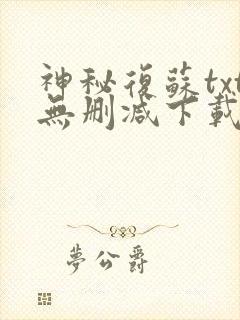 神秘復蘇txt
無刪減下載
夢公爵